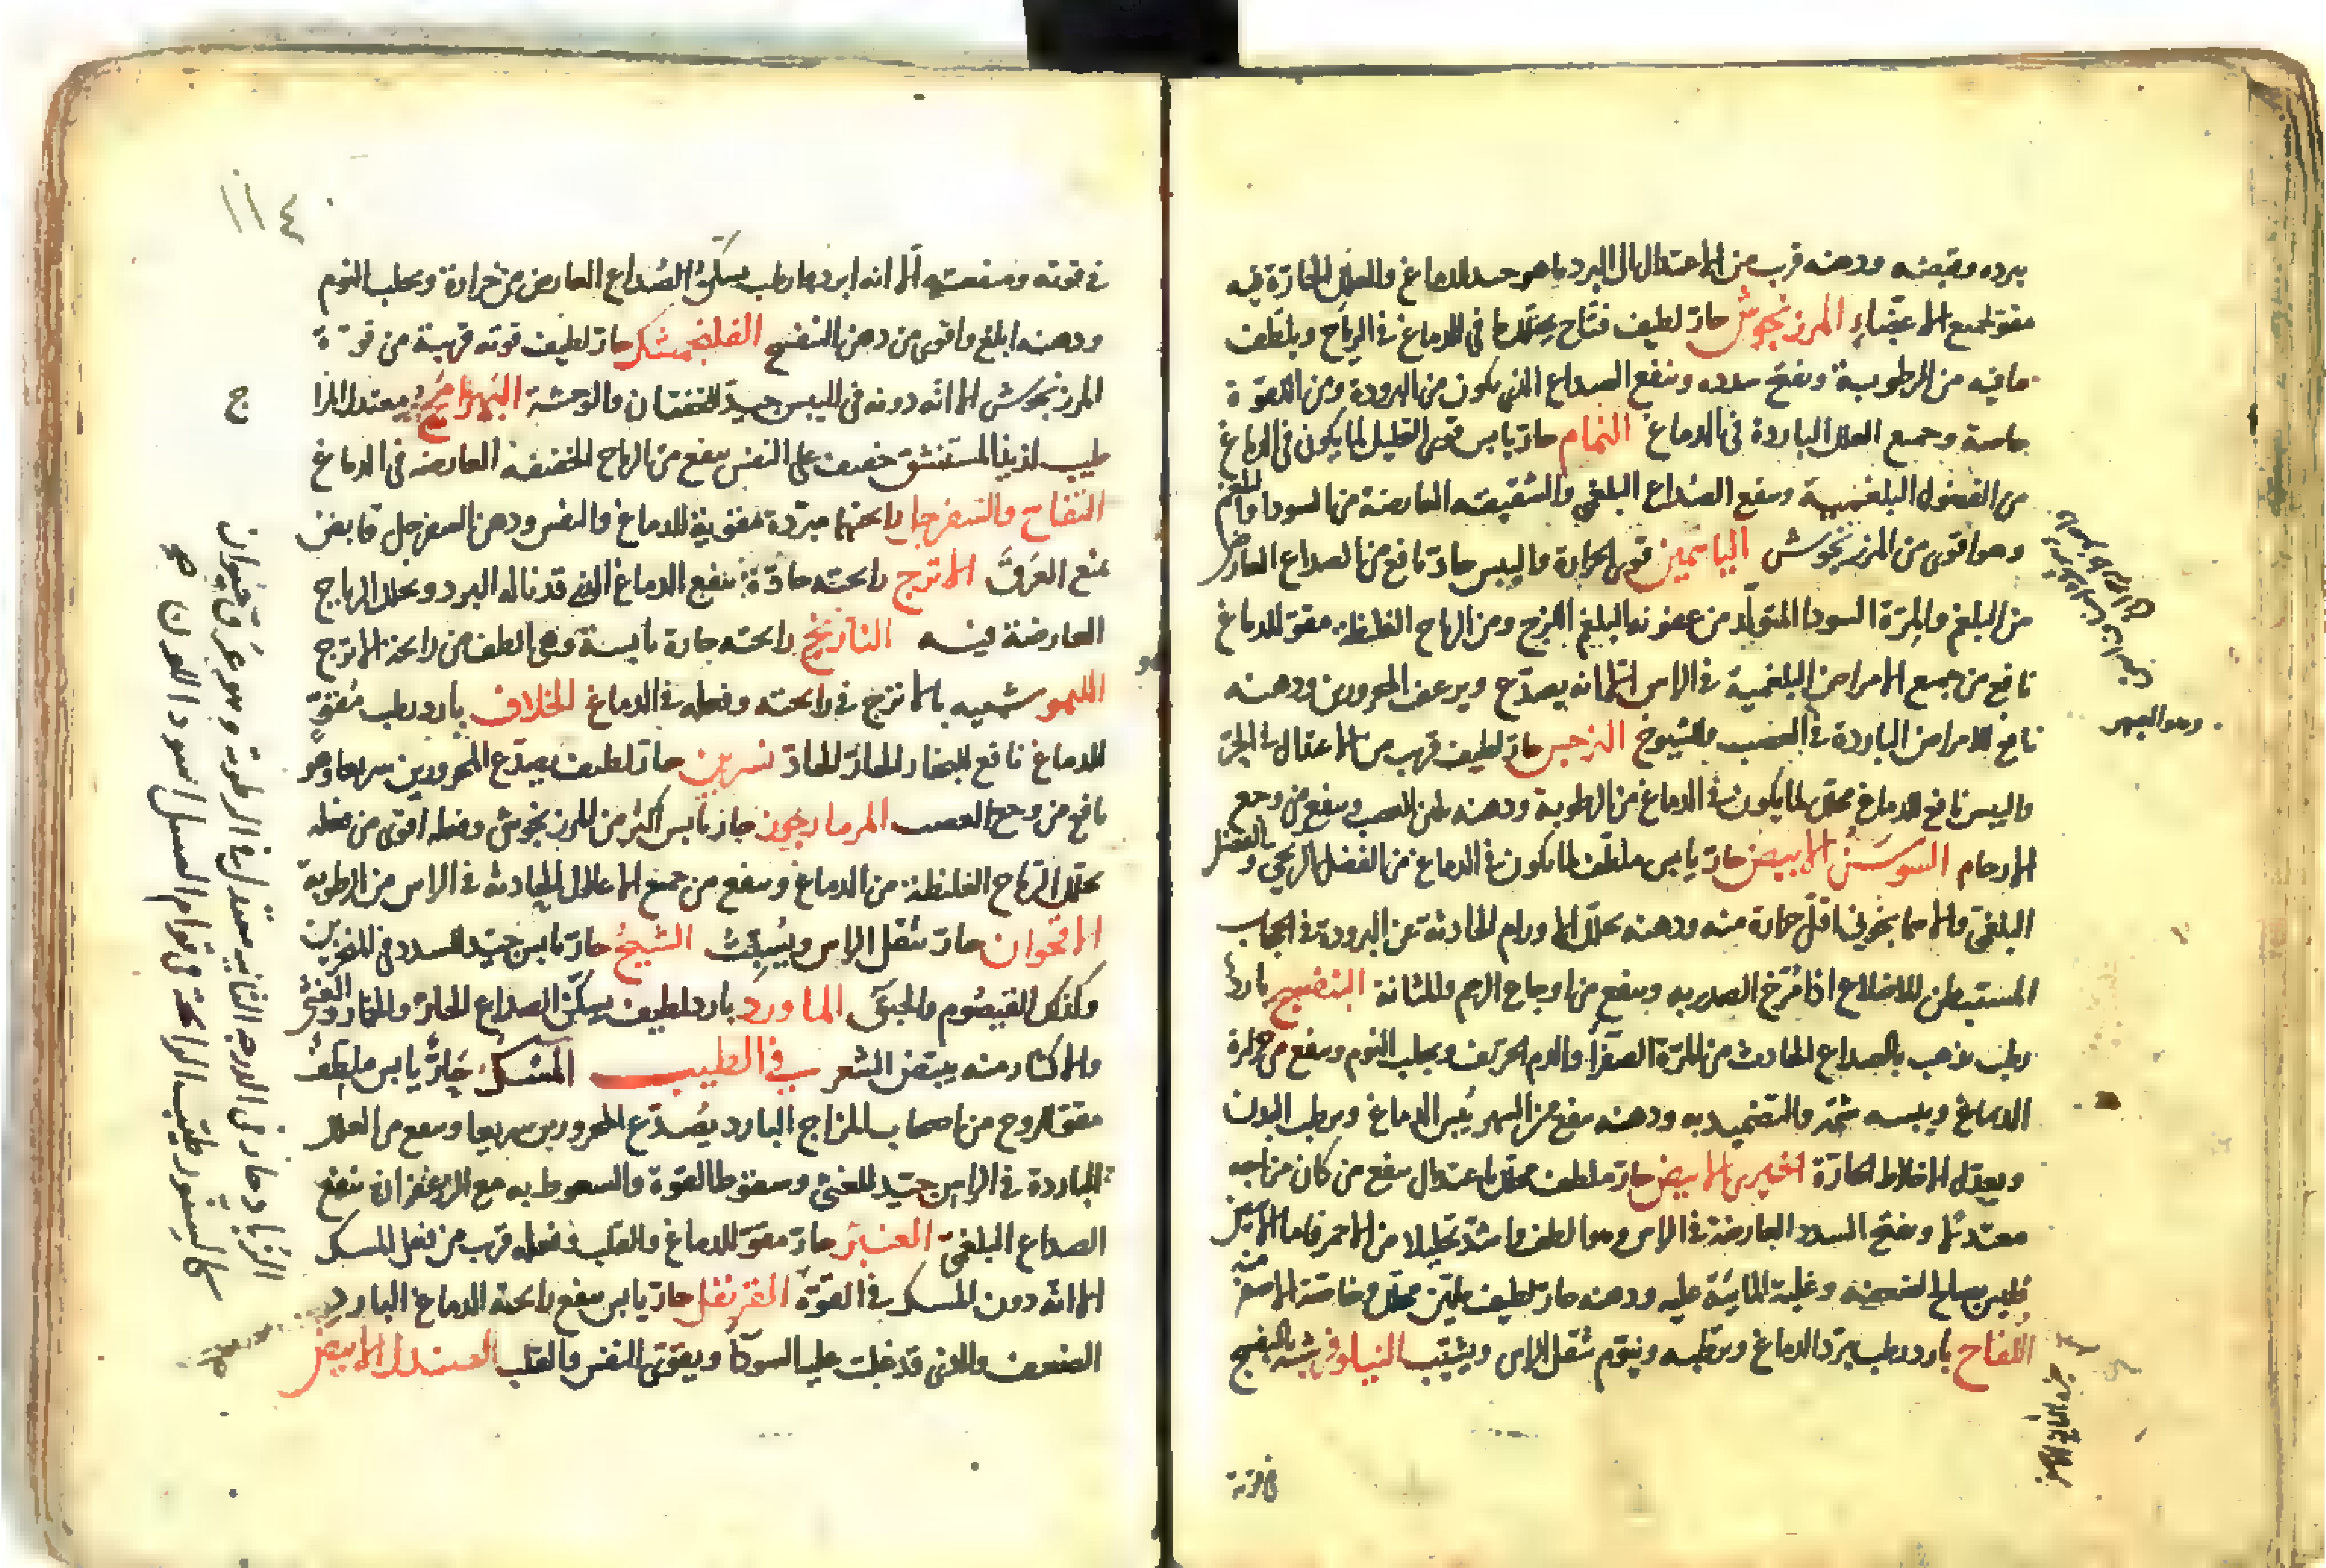 برده وقبضه ودهنه قريب من الاعتدال الى البرد ما هو جيد للدماغ والعلل الحارة فيه
مقو لجميع الاعضاء المرزنجوش حار لطيف فتاح يحلل ما في الدماغ في الرياح ويلطف
ما فيه من الرطوبة وبفتح سدده وينفع الصداع الذي يكون من البرودة ومن اللقوة
خاصة وجميع العلل الباردة في الدماغ النمام حار يابس قوى التحليل لما يكون في الدماغ
من الفضول البلغمية وينفع الصداع البلغمي والشقيقه العارضة من السودا والبلغم
وهو اقوى من المرزنجوش الياسمين قوى الحرارة واليبس حاد نافع من الصداع العارض
من البلغم والمرة السودا المتولد من عفونة البلغم اللزج ومن الرياح الغليظة مقو للدماغ
نافع من جميع الامراض البلغمية في الراس الا انه يصدع ويرعف المحرورين ودهنه
نافع للامراض الباردة في العصب وللشيوخ النرجس حار لطيف قريب من الاعتدال في الحر
واليبس نافع للدماغ محلل لما يكون في الدماغ من الرطوبة ودهنه ملين للعصب وينفع من وجع
الارحام السوسن الابيض حار يابس ملطف لما يكون في الدماغ من الفضل الريحي والفضل
البلغمي والاسمانجوني اقل حرارة منه ودهنه يحلل الاورام الحادثة عن البرودة في الحجاب
المستبطن للاضلاع اذا مرخ الصدر به وينفع من اوجاع الرحم والمثانة البنفسج بارد
رطب يذهب بالصداع الحادث من المرة الصفرا والدم الحريف ويجلب النوم وينفع من حرارة
الدماغ ويبسه شمه والتضميد به ودهنه ينفع من السهر ويبس الدماغ ويرطب البدن
ويعدل الاخلاط الحارة الخيرى الابيض حار ملطف محلل باعتدال ينفع من كان مزاجه
معتدلا ويفتح السدد العارضة في الراس وهو الطف واشد تحليلا من الاحمر فاما الابيض
فليس يصلح لضعفه وغلبة المائية عليه ودهنه حار لطيف ملين محلل وخاصة الاصفر منه
اللفاح بارد رطب يبرد الدماغ ويرطبه وينوم ثقل الراس ويشتب النيلوفر شبيه بالبنفسج
في قوته
وهو العبهر
١١٤
في قوته ومنفعته الا انه ابرد وارطب يسكن الصداع العارض من حرارة ويجلب النوم
ودهنه ابلغ واقوى من دهن البنفسج الفلنجمشك حار لطيف قوته قريبة من قوة
المرزنجوش الا انه دونه في اليبس جيد للخفقان والوحشة البهرامج معتدل الحرا
طيب لذيذ المستنشق خفيف على النفس ينفع من الرياح الخفيفه العارضه في الدماغ
التفاح والسفرجل رائحتهما مبردة مقوية للدماغ والنفس ودهن السفرجل قابض
يمنع العرق الاترج رائحته حادة ينفع الدماغ الذي قد ناله البرد ويحلل الرياح
العارضة فيه النارنج رائحته حارة يابسة وهي الطف من رائحة الاترج
الليمو شبيه بالاترج في رائحته وفعله في الدماغ الخلاف بارد رطب مقو
للدماغ نافع للبخار الحار الحاد نسرين حار لطيف يصدع المحرورين سريعا وهو
نافع من وجع العصب المرماحوز حار يابس اكثر من المرزنجوش وفعله اقوى من فعله
يحلل الرياح الغليظة من الدماغ وينفع من جميع الاعلال الحادثة في الراس من الرطوبة
الاقحوان حار يثقل الراس ويسبت الشيح حار يابس جيد للسدد في المنخرين
وكذلك القيصوم والحبق الماورد بارد لطيف يسكن الصداع الحار والخمار والغشى
والاكثار منه يبيض الشعر في الطيب المسك حار يابس ملطف
مقو للروح من اصحاب المزاج البارد يصدع المحرورين سريعا وينفع من العلل
الباردة في الراس جيد للغشى وسقوط القوة والسعوط به مع الزعفران ينفع
الصداع البلغمي العنبر حار مقو للدماغ والقلب وفعله قريب من فعل المسك
الا انه دون المسك في القوة القرنفل حار يابس ينفع رائحته الدماغ البارد
الضعيف والذي قد غلبت عليه السودا ويقوى النفس والقلب الصندل الابيض
ج
الزباد حار في الدرجة الثانية معتدل في الرطوبة وهو عرق حيوان
كالسنور طيب الرائحة في قوام العسل اسود اللون